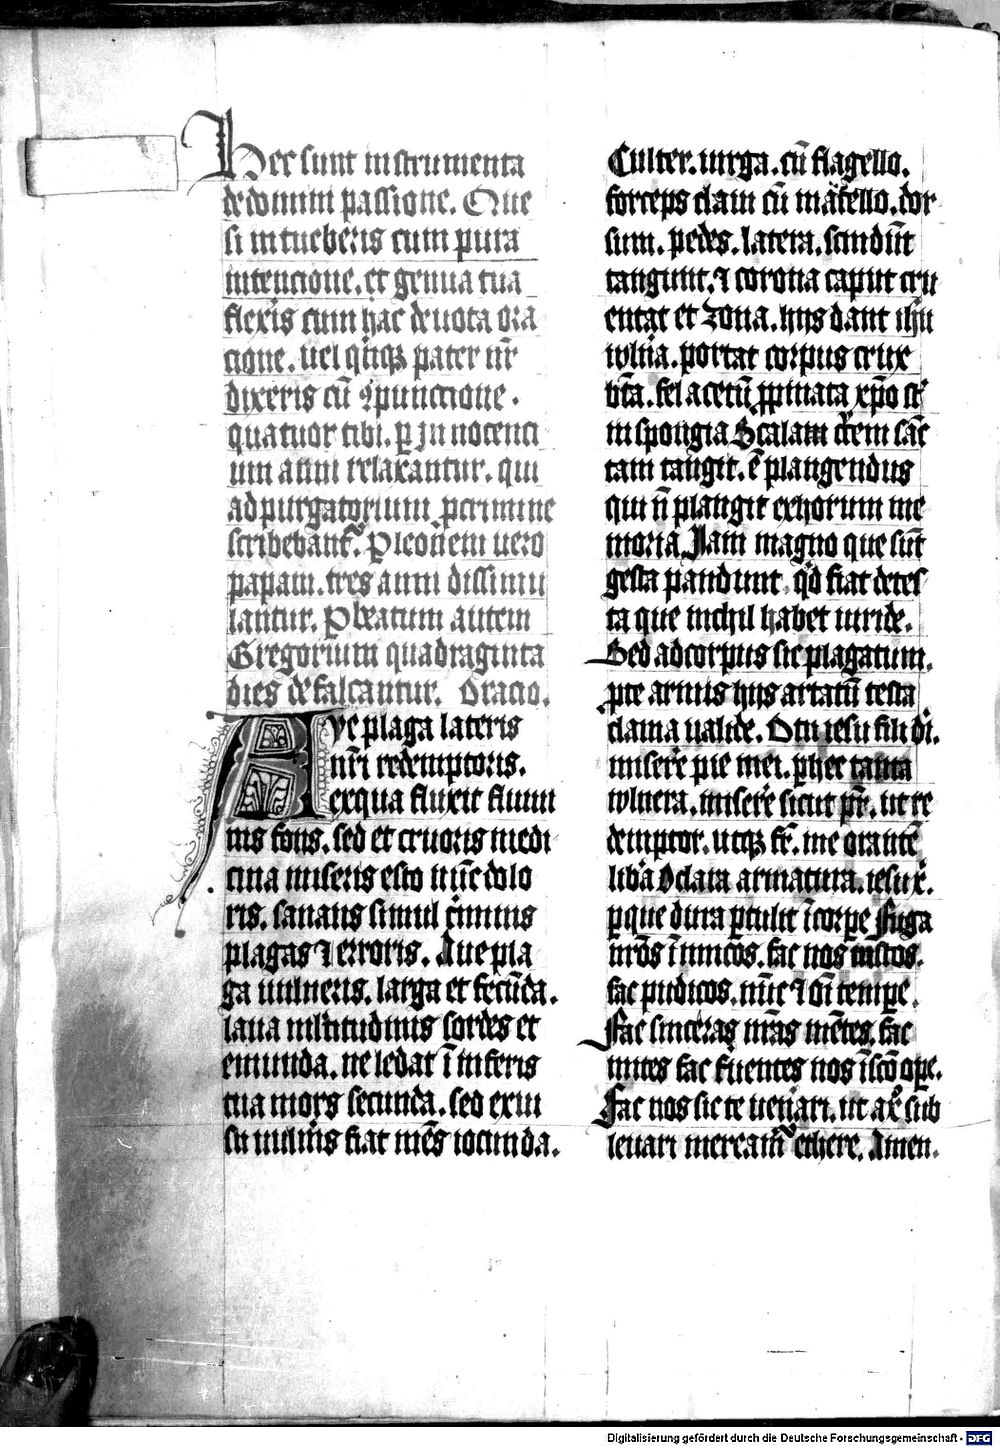 Hec sunt instrumenta
de domini passione. Que
si intueberis cum pura
intencione. et genua tua
flexis cum hac deuota ora
cione. uel q̄nq̄ pater nr̄
dixeris cū ꝯpunctione.
quatuor tibi. ꝑ Innocenci
um anni relaxantur. qui
ad purgatorium ꝓ crimine
scribebant᷑. P leonem uero
papam. tres anni dissimu
lantur. P beatum autem
Gregorium quadraginta
dies defalcantur. Oracio.
Aue plaga lateris
nr̄i redemptoris.
ex qua fluxit flumi
nis fons. sed et cruoris medi
cina miseris esto nūc dolo
ris. sanans simul c̄minis
plagas ⁊ erroris. Aue pla
ga uulneris. larga et fecūda.
laua ml̄titudinis sordes et
emunda. ne ledat ī inferis
tua mors secunda. sed exiu
su uulnīs fiat mēs iocunda.
Culter. uirga. cū flagello.
forceps claui cū mārtello. dor
sum. pedes. latera. scindūt
tangunt. ⁊ corona caput cru
entat et zona. hiis dant ihū
wln̄a. portat corpus crux
bt̄a. fel acetū ꝓpinata xp̄o st̄
in spongia Scalam
tam tangit. ē plangendus
qui n̄ plangit ex horum me
moria. Nam magno que sūt
gesta pandunt. qd̄ fiat detes
ta que nichil habet uiride.
Sed ad corpus sic plagatum.
ꝑte armis hiis artatū testa
clama ualide. O tu iesu fili di.
miserē pie mei. ꝑ hec tanta
wlnera. miserē sicut pr̄. ut re
demptor. utqꝫ fr̄. me orantē
libā O clara armatura. iesu x̄.
ꝑque dura ꝑtulit ī corpe Fuga
nr̄os īimicos. fac nos iustos.
fac pudicos. nūc ⁊ oī tempe.
Fac sinceras nr̄as mētes. fac
mites fac fuentes nos ī sco ope.
Fac nos sic te uenari. ut ax̄ sub
leuari meream᷑ ethere. Amen.
Digitalisierung gefördert durch die Deutsche Forschungsgemeinschaft - DFG